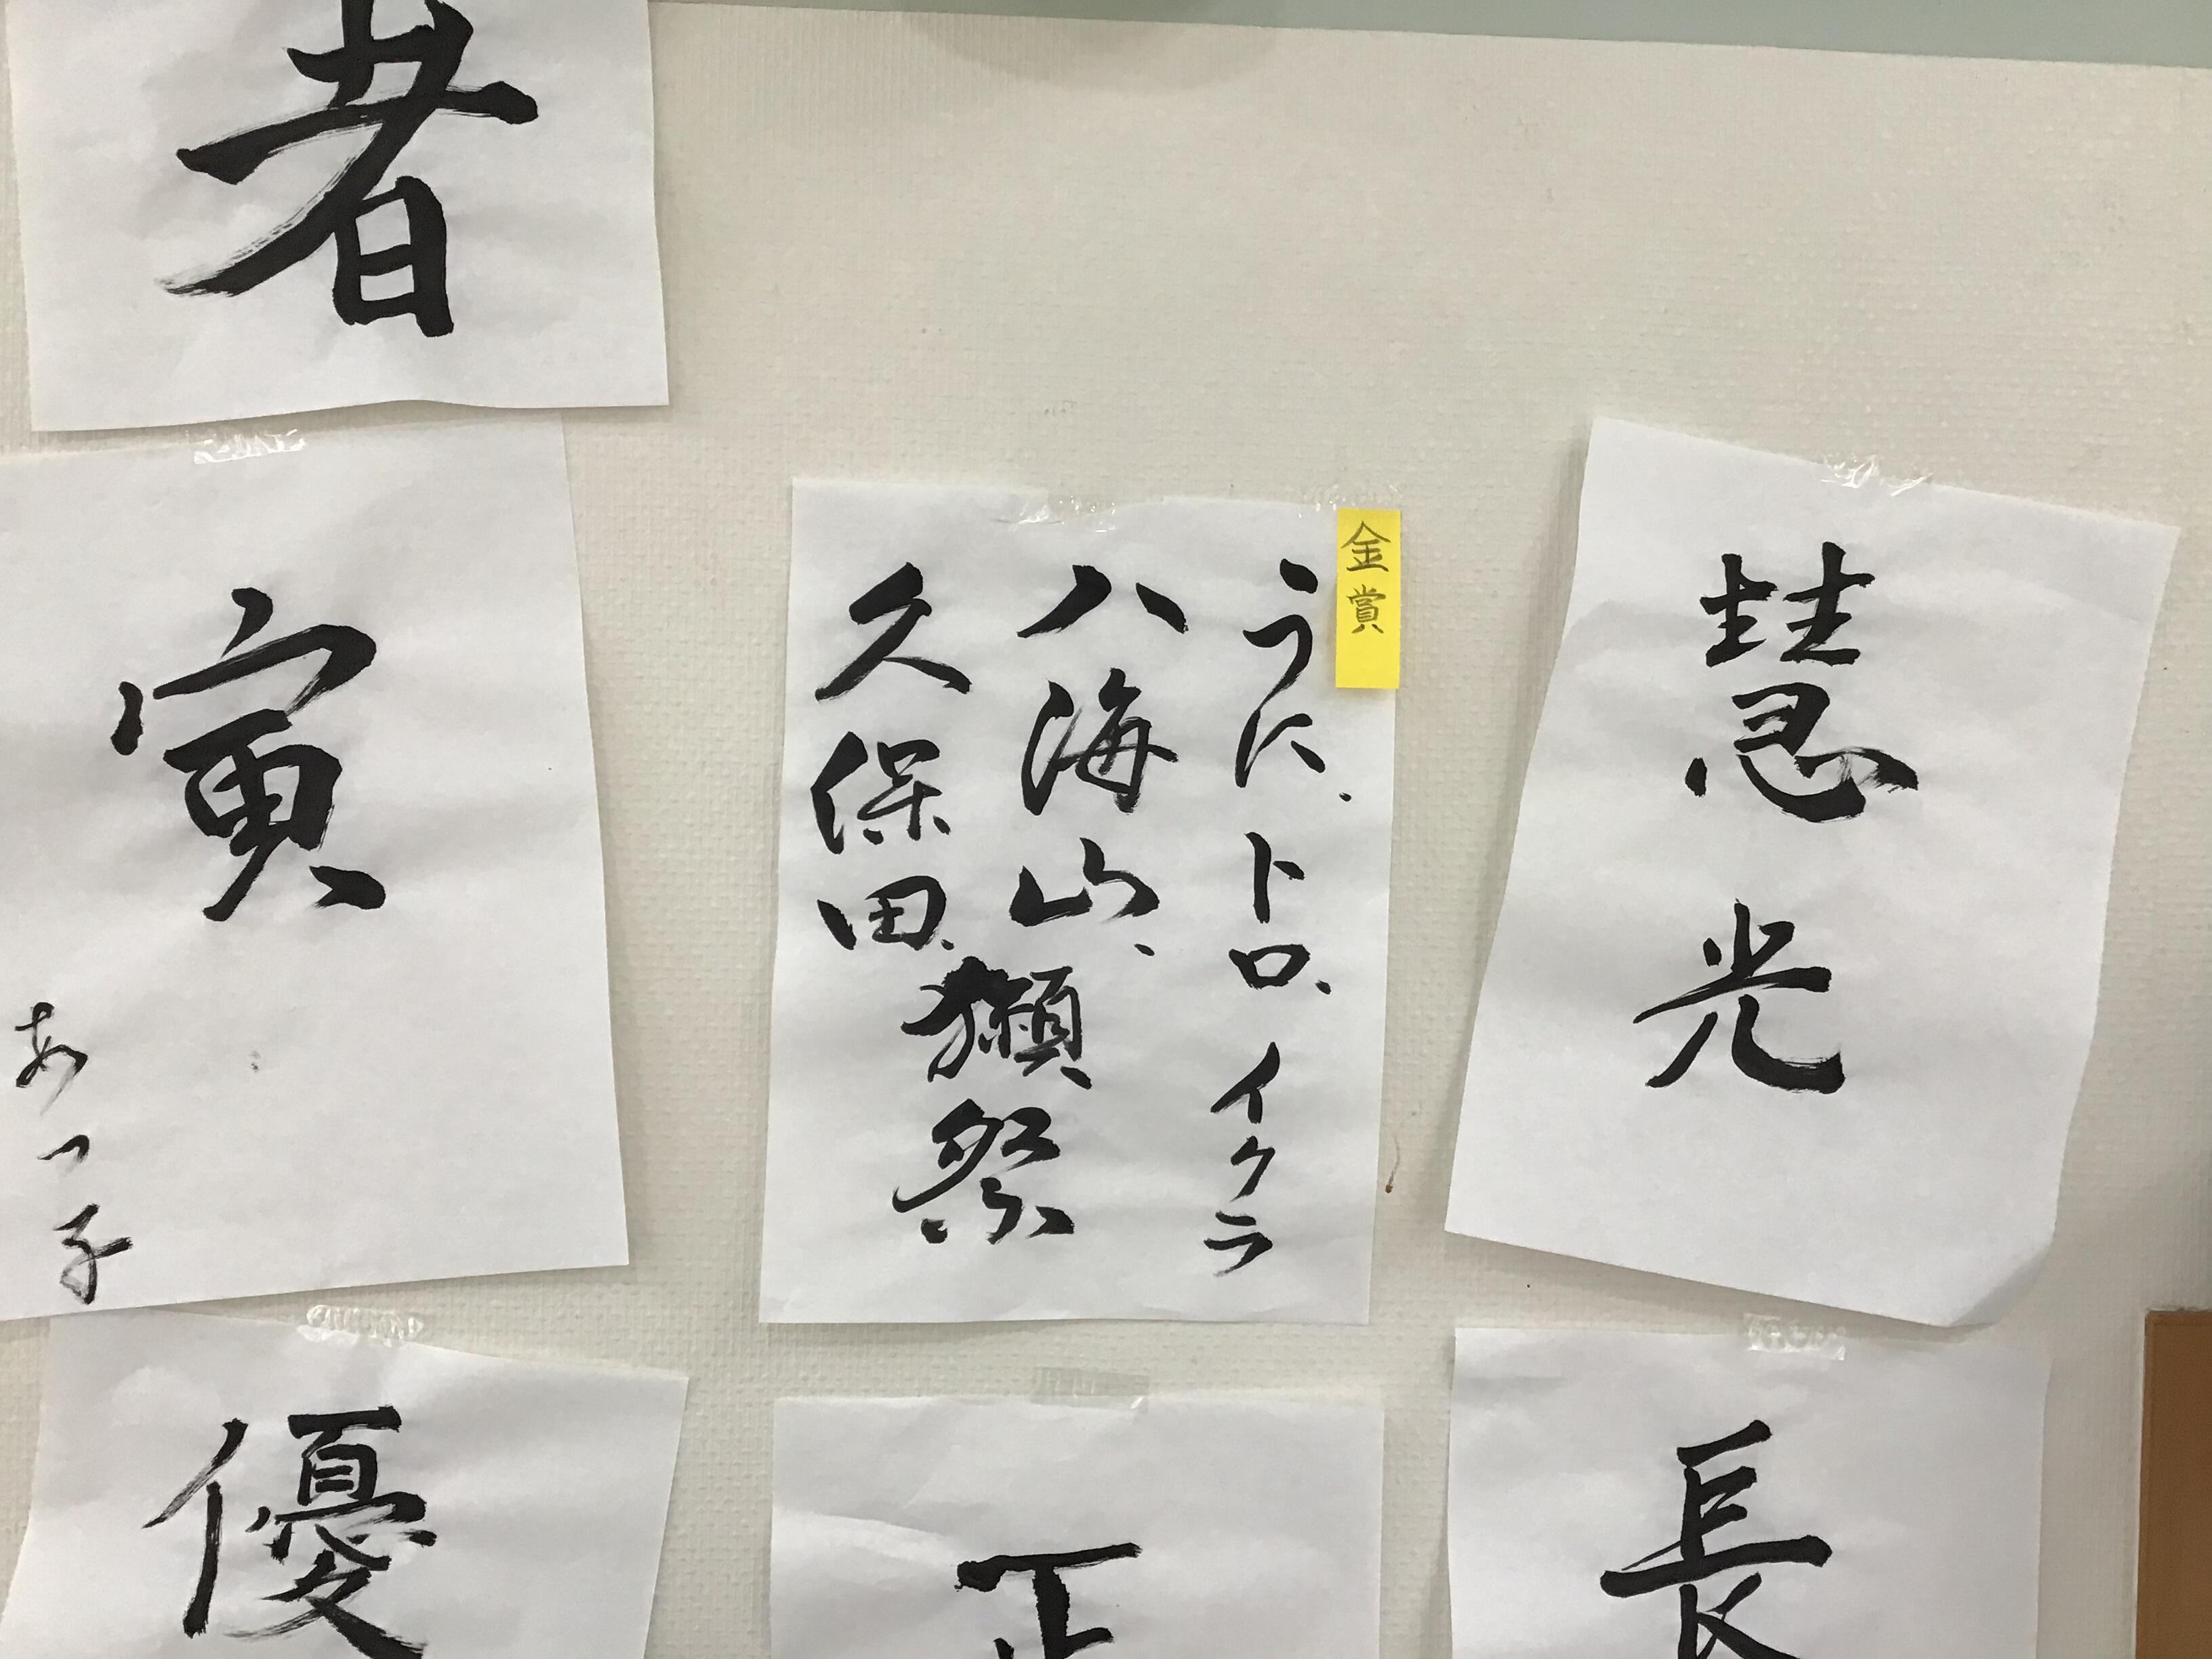 者
金賞
うに、トロ、イクラ
八海山、
久保田、
獺祭
慧光
寅
あつ子
優
正
長